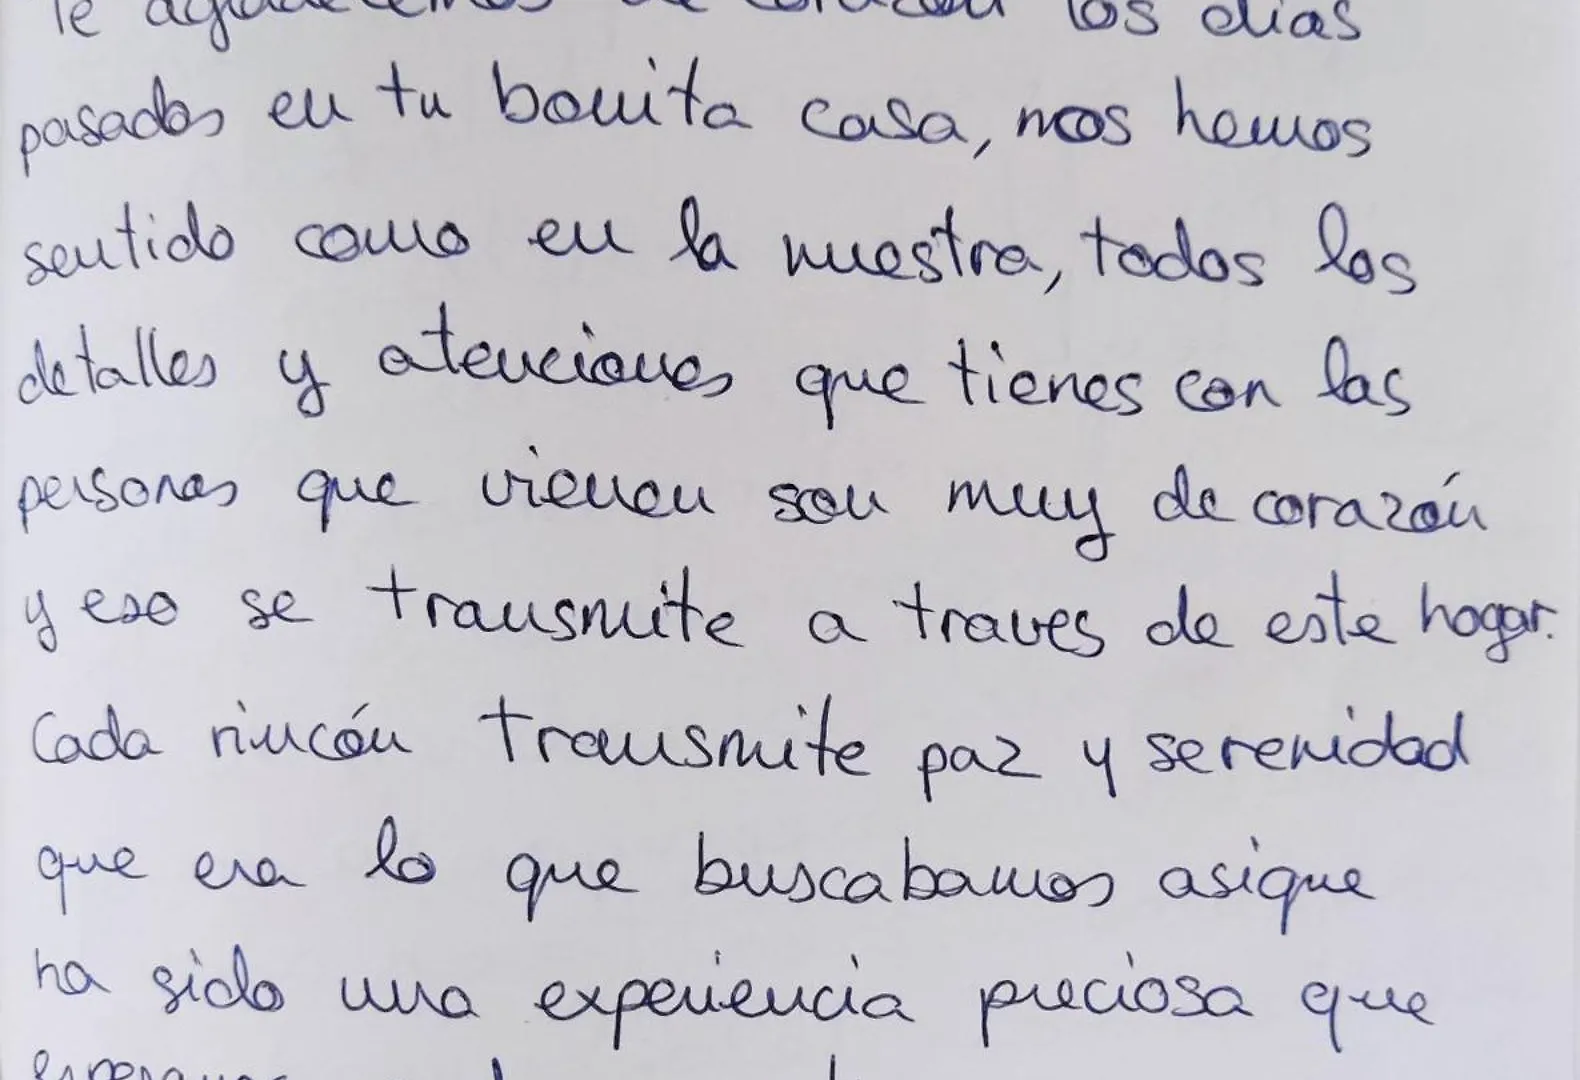 Te agradecemos de corazón los días
pasados en tu bonita casa, nos hemos
sentido como en la nuestra, todos los
detalles y atenciones que tienes con las
personas que vienen son muy de corazón
y eso se transmite a traves de este hogar.
Cada rincón transmite paz y serenidad
que era lo que buscabamos asique
ha sido una experiencia preciosa que
esperamos